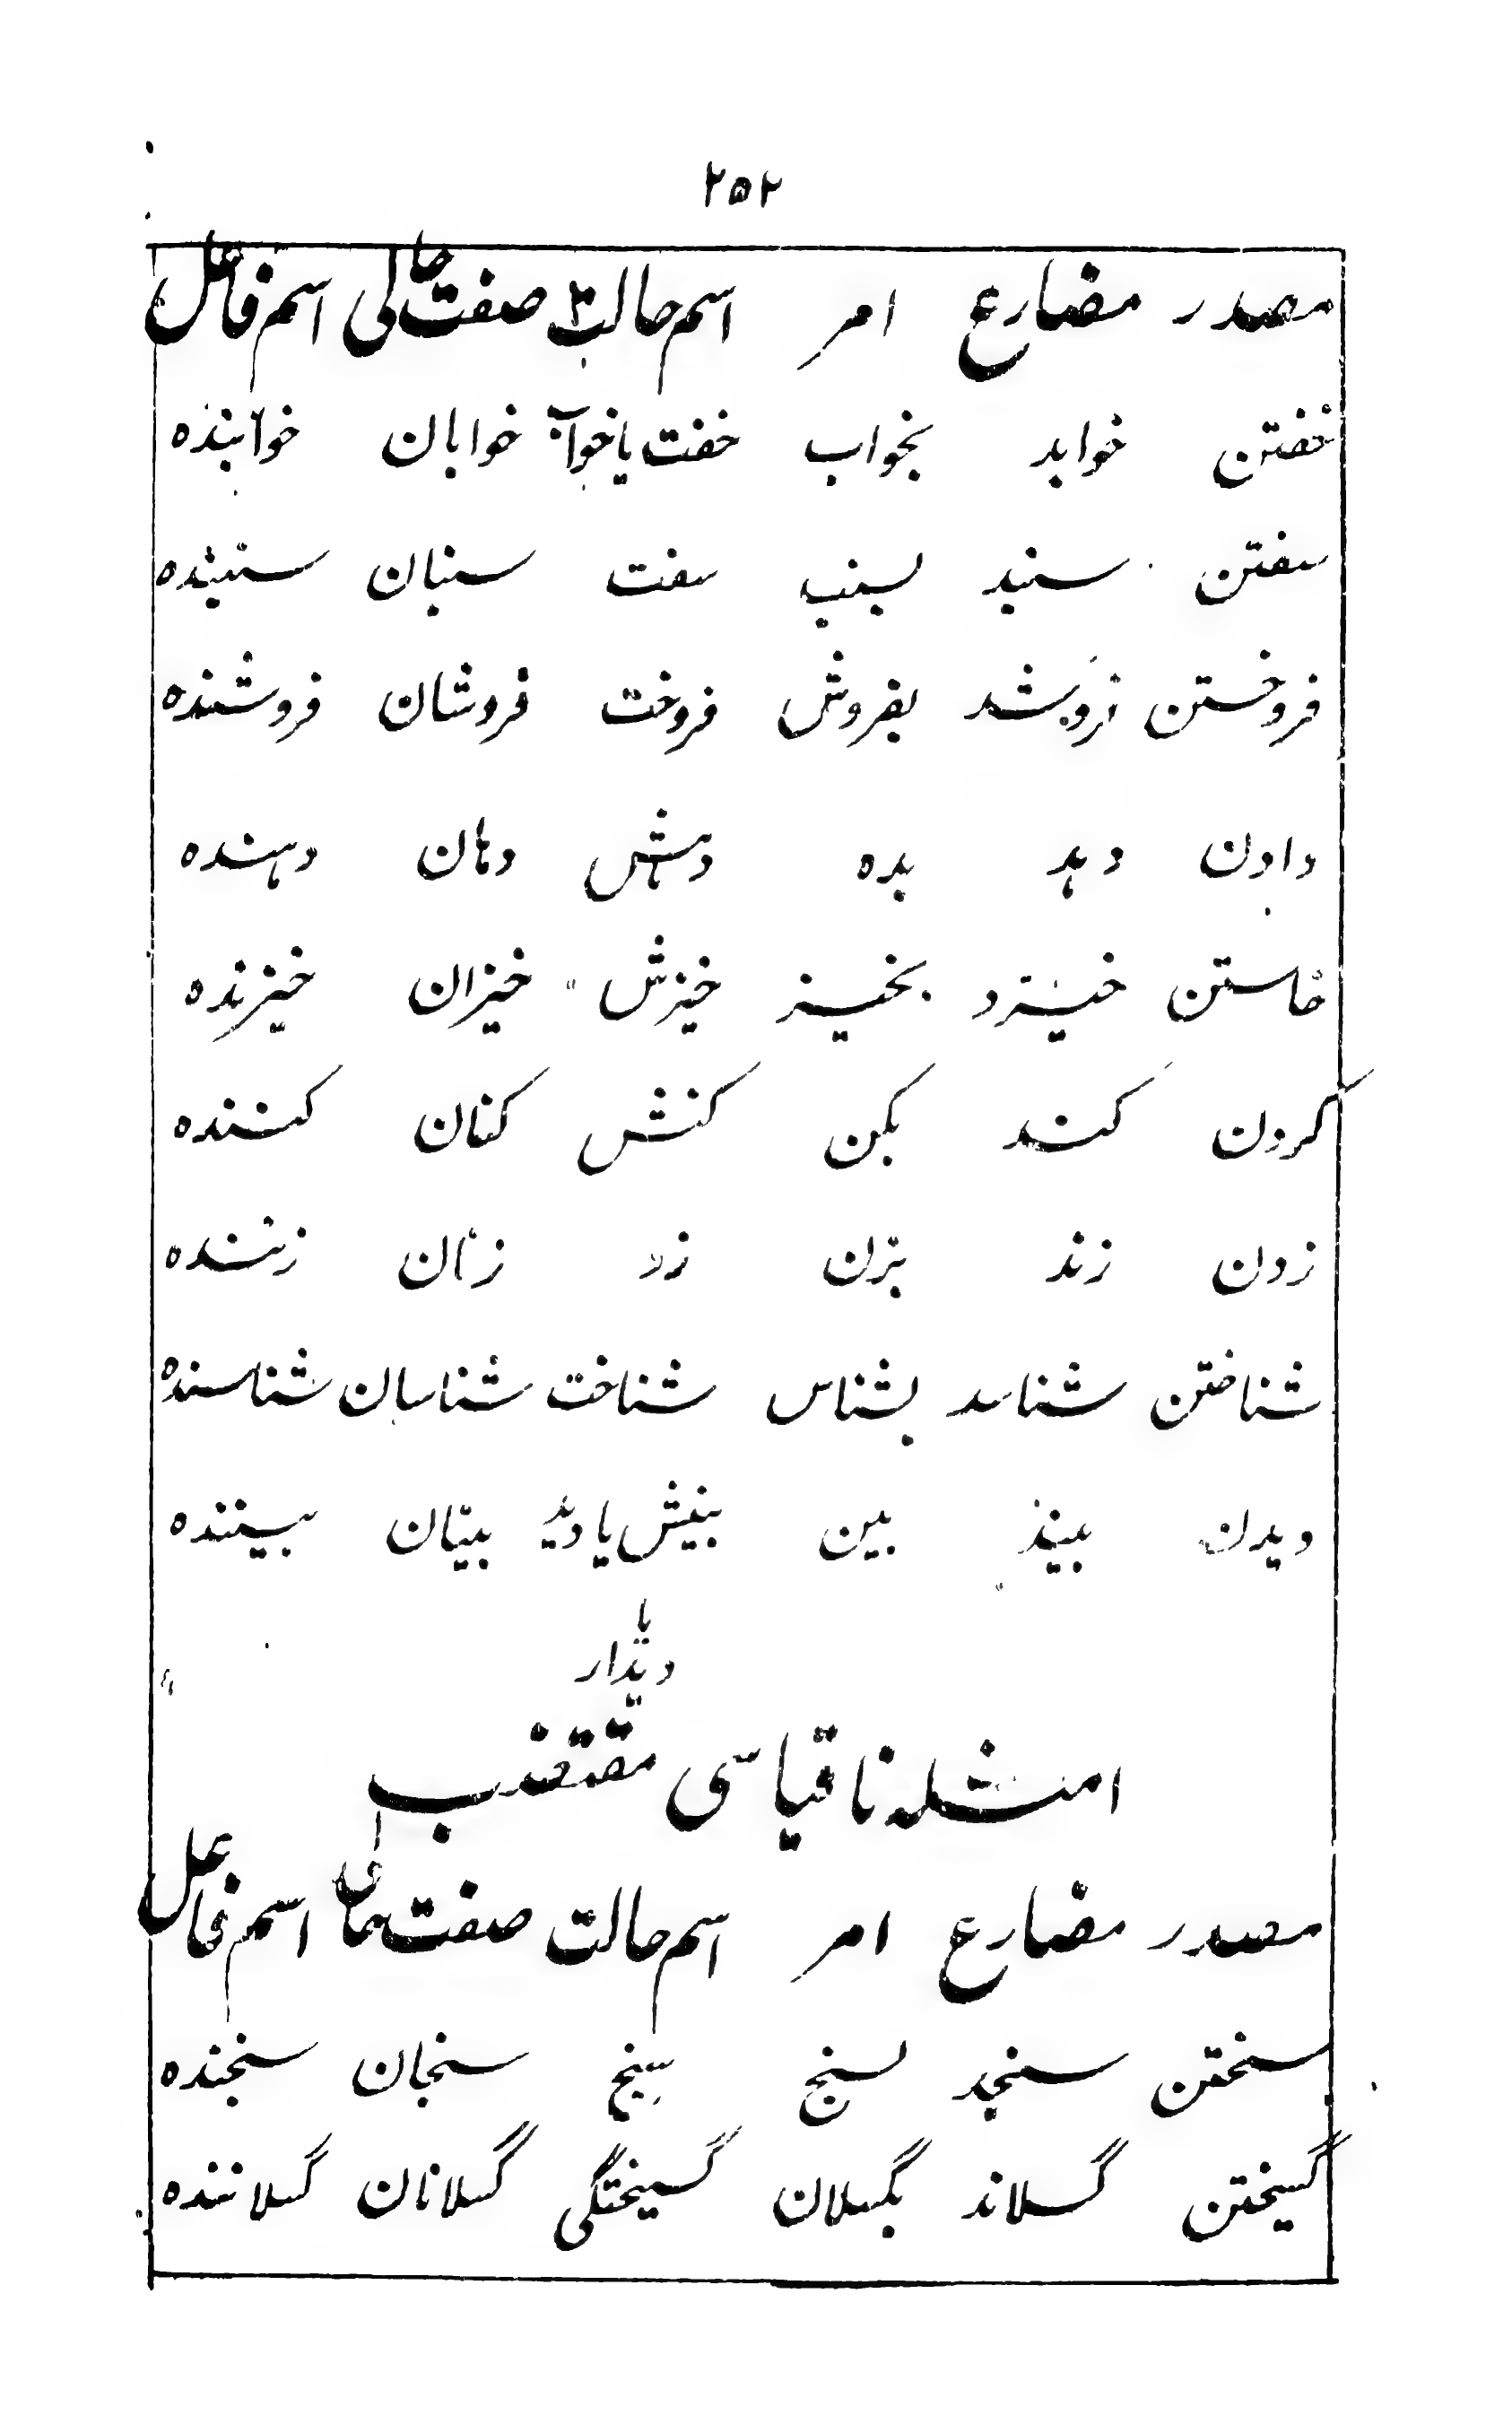 ۲۵۲
مصدر مضارع امر اسم حالت صفت حالی اسم فاعل
خفتن خوابد بخواب خفت یا خواب خوابان خوابنده
سفتن سنبد بسنب سفت سنبان سنبنده
فروختن فروشد بفروش فروخت فروشان فروشنده
دادن دہد بده دہش دہان دہنده
خاستن خیزد بخیز خیزش خیزان خیزنده
کردن کند بکن کنش کنان کننده
زدن زند بزن زد زنان زننده
شناختن شناسد بشناس شناخت شناسان شناسنده
دیدن بیند ببین بینش یا دید بینان بیننده
یا
دیدار
امثلہ نا قیاسی مقتضب
مصدر مضارع امر اسم حالت صفت حالی اسم فاعل
سنختن سنجد بسنج سنج سنجان سنجنده
گسیختن گسلاند بگسلان گسیختگی گسلانان گسلاننده